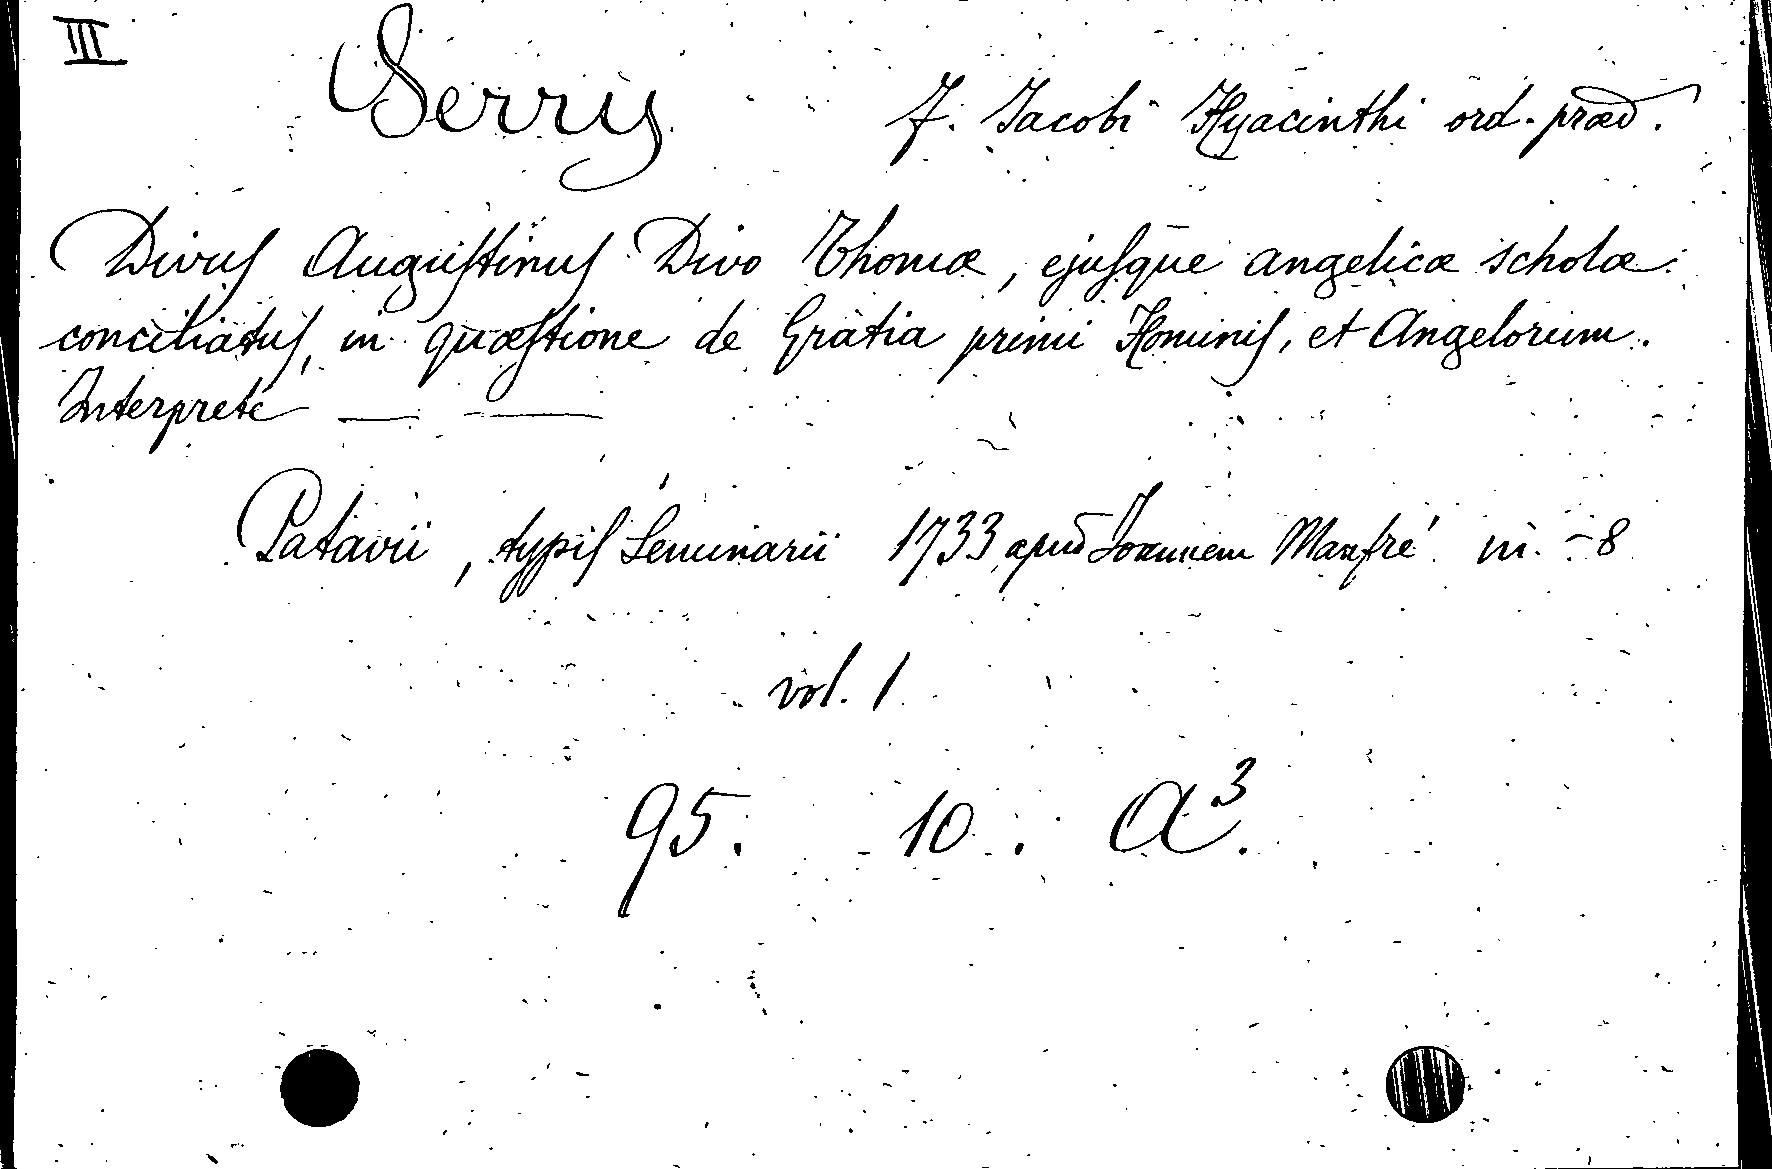 III
Serry F. Jacobi Hyacinthi ord. præd.
Divus Augustinus Divo Thomæ, ejusque angelicæ scholæ
conciliatus, in quæstione de Gratia primi Hominis, et Angelorum.
Interprete — —
Patavii, typis Seminarii 1733 apud Joannem Manfré in - 8
vol. 1
95. 10. A³.